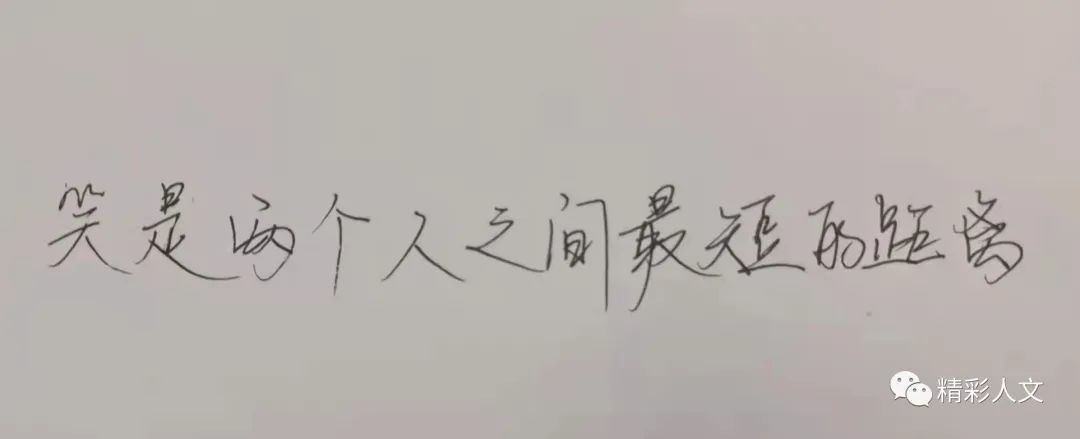 笑是两个人之间最短的距离
精彩人文